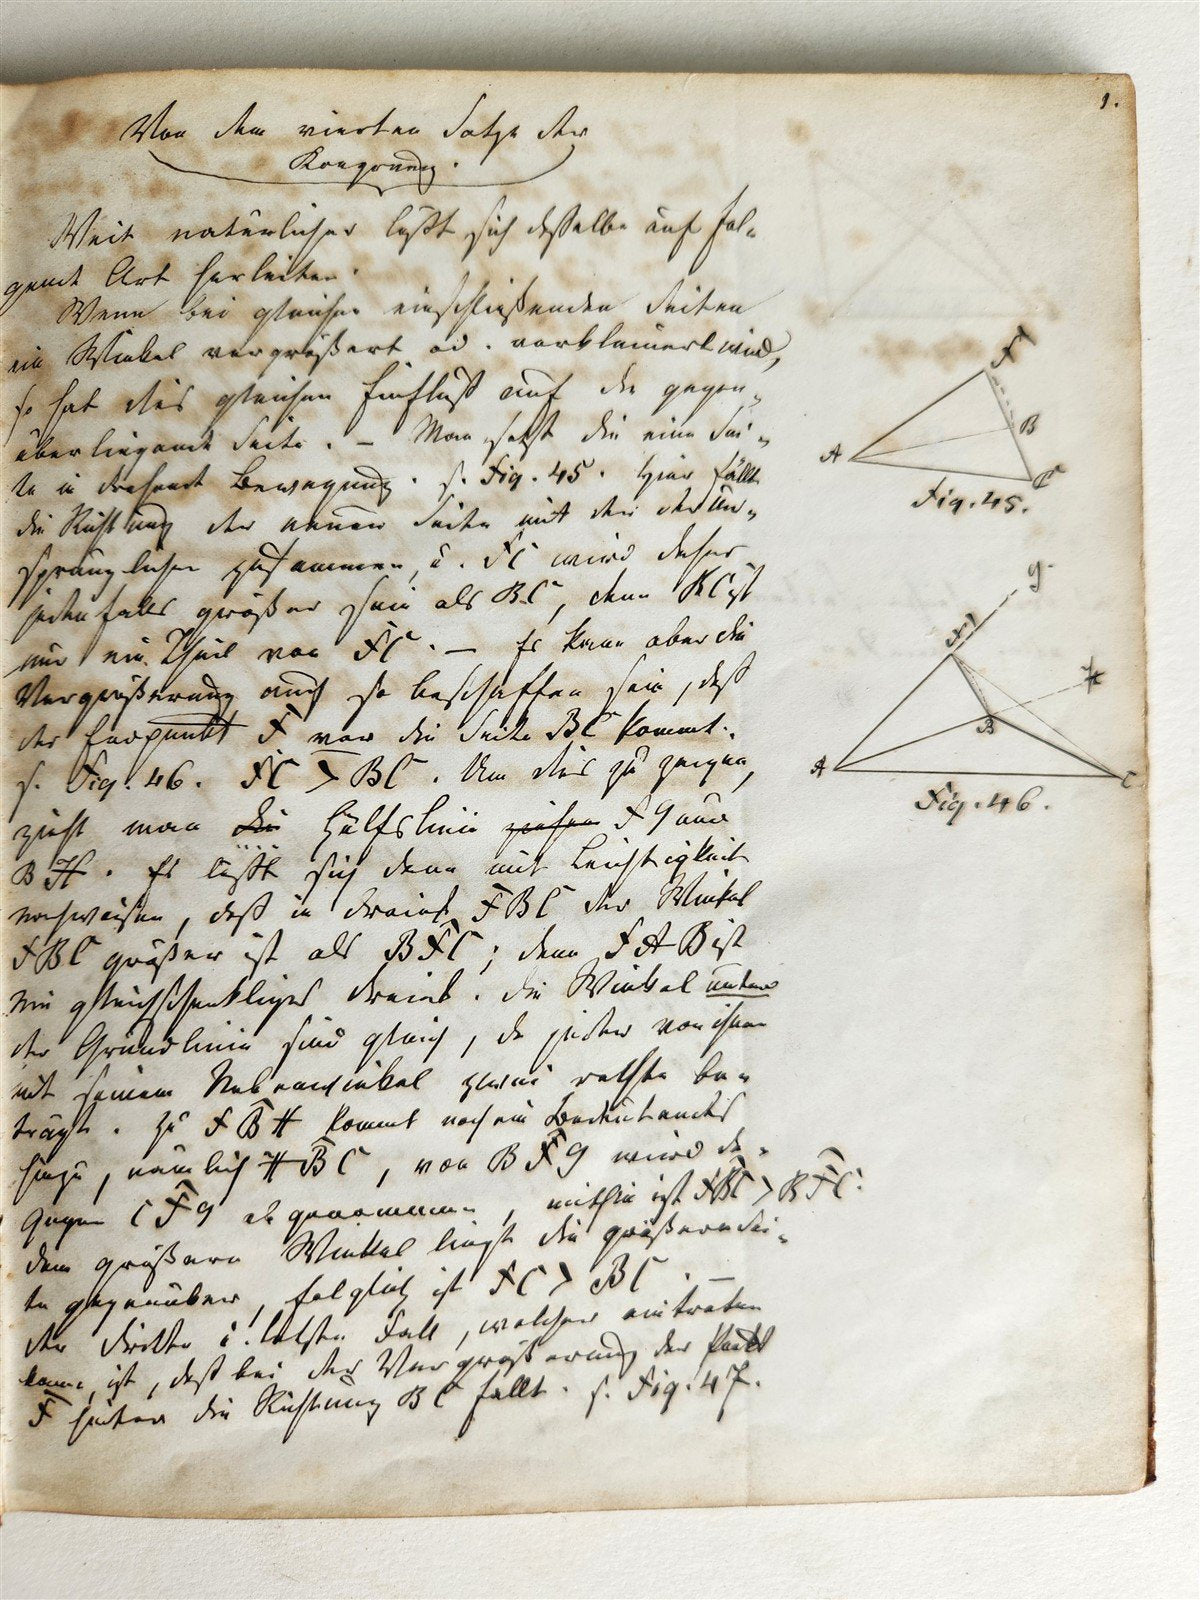 1.
Von dem vierten Satze der
Kongruenz.
Weit natürlicher läßt sich dasselbe auf fol-
gende Art herleiten.
Wenn bei gleichen einschließenden Seiten
ein Winkel vergrößert od. verkleinert wird,
so hat dies gleichen Einfluß auf die gegen-
überliegende Seite. — Man setzt die eine Sei-
te in drehende Bewegung. s. Fig. 45. Hier fällt
die Richtung der neuen Seite mit der der ur-
sprünglichen zusammen, u. FC wird daher
jedenfalls größer sein als BC, denn BC ist
nur ein Theil von FC. — Es kann aber die
Vergrößerung auch so beschaffen sein, daß
der Endpunkt F vor die Seite BC kommt.
s. Fig. 46. FC > BC. Um dies zu zeigen,
zieht man die Hülfslinie ziehen FG und
BH. Es läßt sich dann mit Leichtigkeit
nachweisen, daß in Dreieck FBC der Winkel
FBC größer ist als BFC; denn FAB ist
ein gleichschenkliges Dreieck. Die Winkel unter
der Grundlinie sind gleich, da jeder von ihnen
mit seinem Nebenwinkel zwei rechte be-
trägt. Zu FBH kommt noch ein Bedeutendes
hinzu, nämlich HBC, von BFG wird da-
gegen CFG abgenommen, mithin ist FBC > BFC.
Dem größern Winkel liegt die größere Sei-
te gegenüber, folglich ist FC > BC. —
Der dritte u. letzte Fall, welcher eintreten
kann, ist, daß bei der Vergrößerung der Punkt
F hinter die Richtung BC fällt. s. Fig. 47.
F
A
B
C
Fig. 45.
G
F
H
B
A
C
Fig. 46.